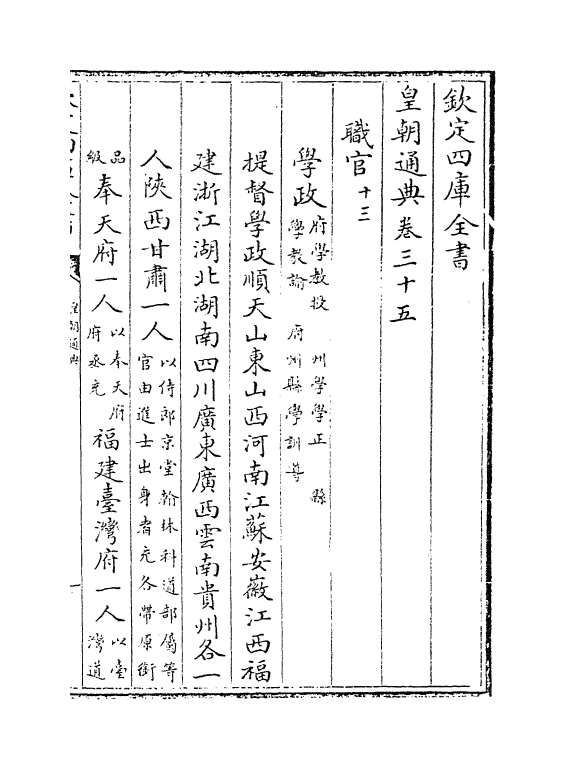 欽定四庫全書
皇朝通典卷三十五
職官十三
學政府學教授 州學學正 縣學教諭 府州縣學訓導
提督學政順天山東山西河南江蘇安徽江西福
建浙江湖北湖南四川廣東廣西雲南貴州各一
人陝西甘肅一人以侍郎京堂翰林科道部屬等官由進士出身者充各帶原銜
品級奉天府一人以奉天府府丞充福建臺灣府一人以臺灣道
皇朝通典
一